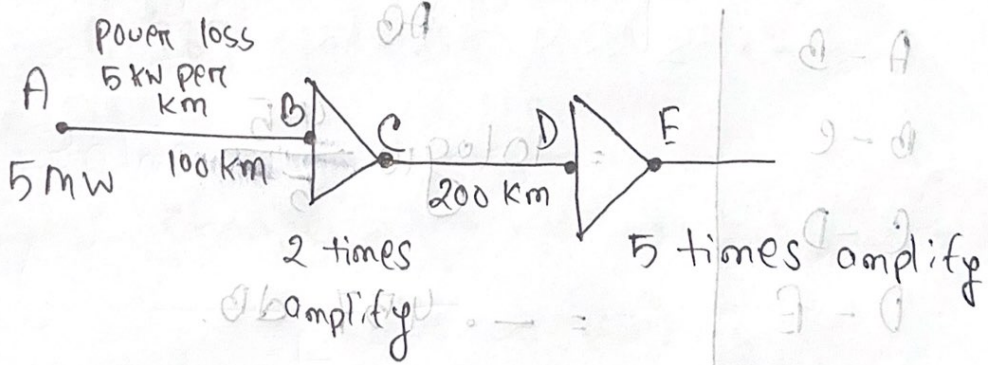 power loss
5 kW per
km
A
B
C
D
E
5 MW
100 km
200 km
2 times
amplify
5 times amplify